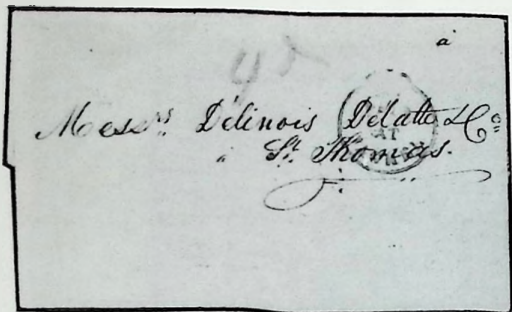 à
4
Messrs. Délinois Delatte & Co
à St. Thomas.